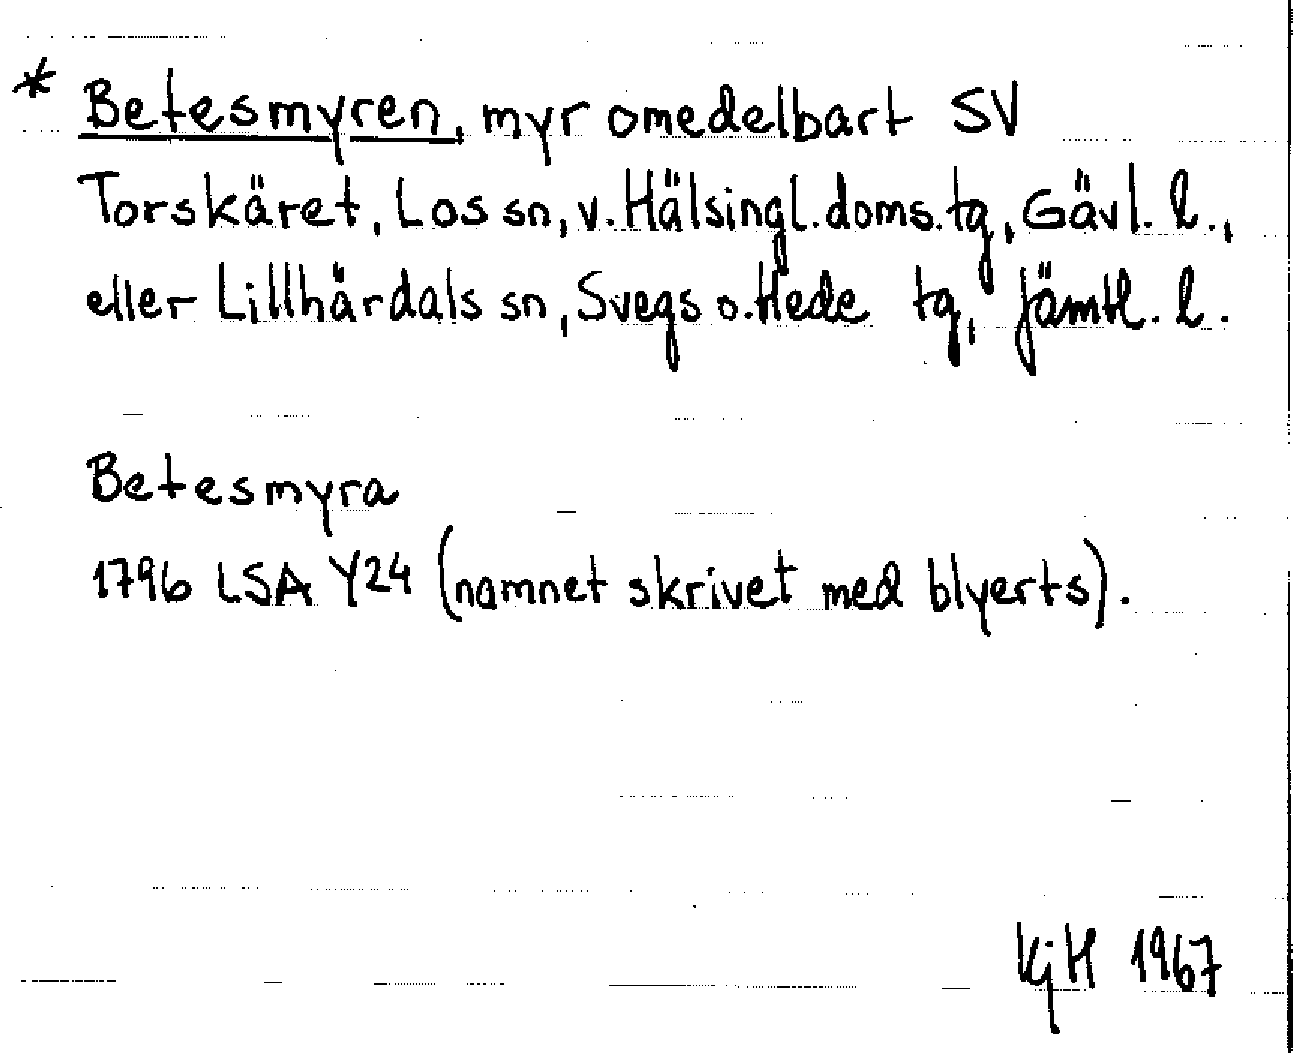 * Betesmyren, myr omedelbart SV
Torskäret, Los sn, v. Hälsingl. doms. tg, Gävl. l.,
eller Lillhärdals sn, Svegs o. Hede tg, Jämtl. l.
Betesmyra
1796 LSA Y24 (namnet skrivet med blyerts).
KjH 1967